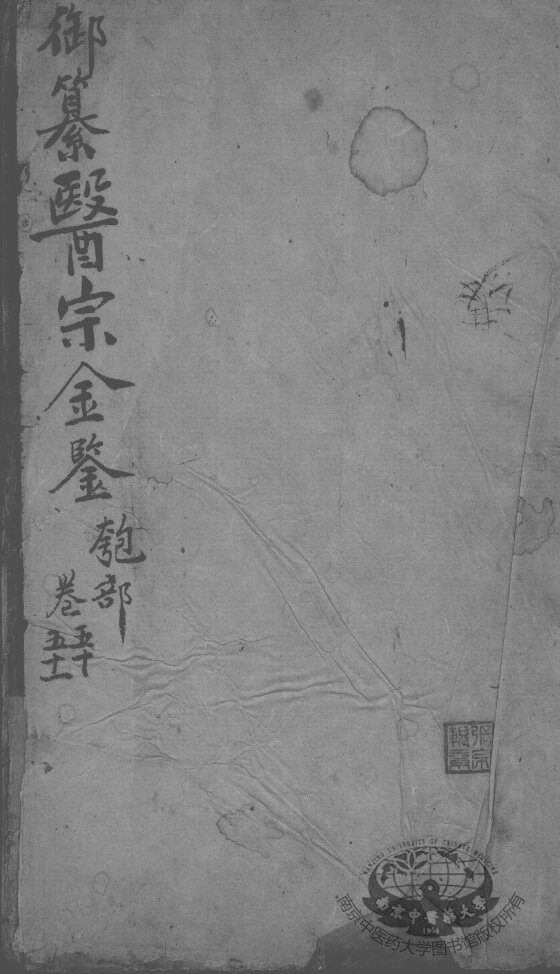 御纂醫宗金鑒
匏部
卷五十
五十一
NANJING UNIVERSITY OF CHINESE MEDICINE
南京中醫藥大學
1954
南京中医药大学图书馆版权所有